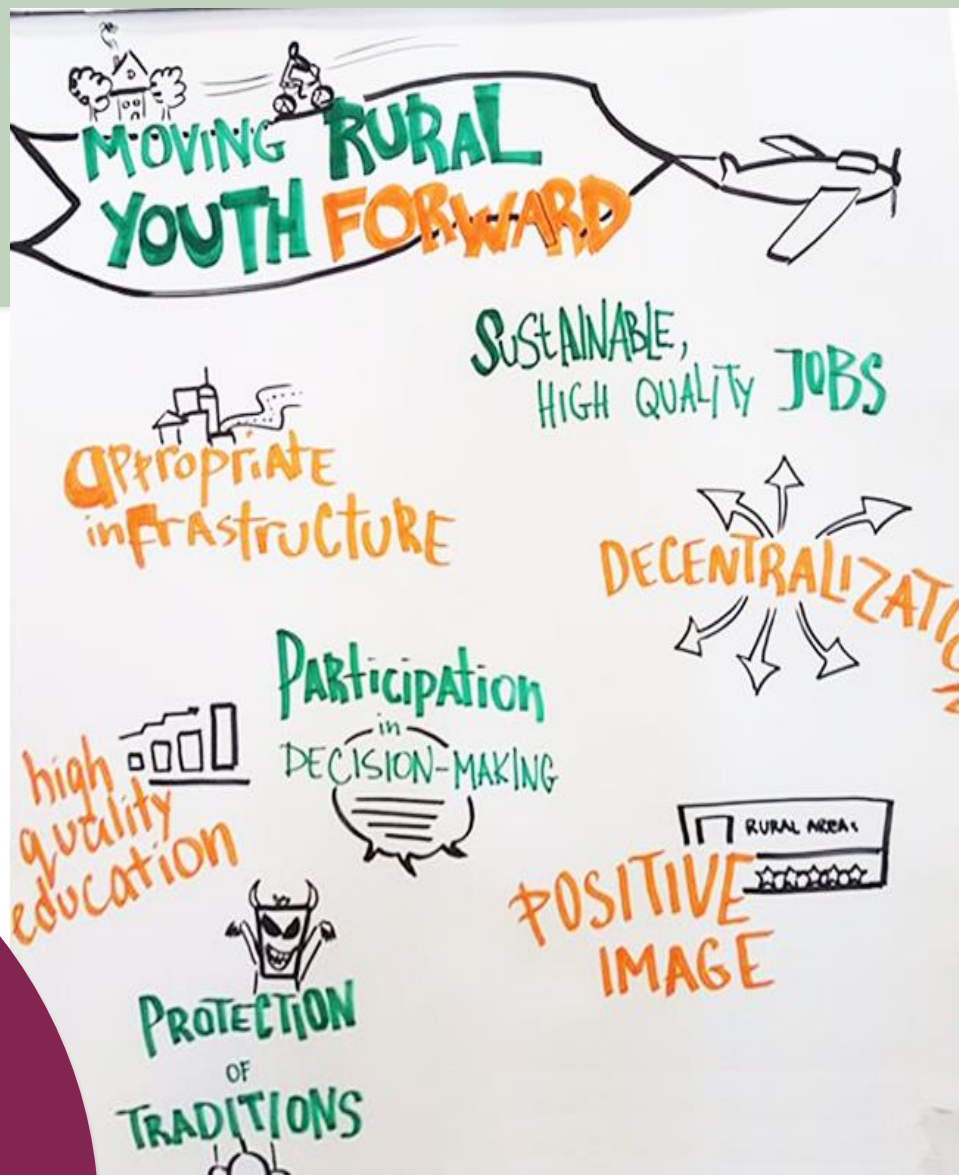 MOVING RURAL
YOUTH FORWARD
SUStAINABLE,
HIGH QUALiTy JOBS
aPPropriAtE
inFrAStruCtURE
DECENTRALIZATIO
PARticipAtion
in
DECISION-MAKING
high
quality
education
RURAL AREAs
POSITIVE
IMAGE
PROTECTiON
OF
TRADITIONS